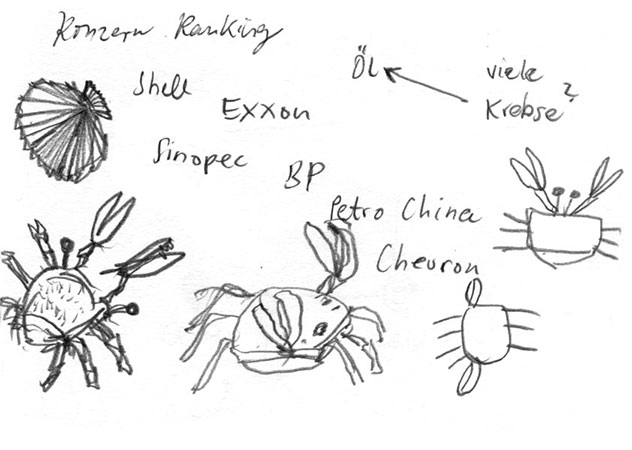 Konzern Ranking
Shell
Exxon
Sinopec
BP
Petro China
Chevron
Öl
viele
Krebse ?